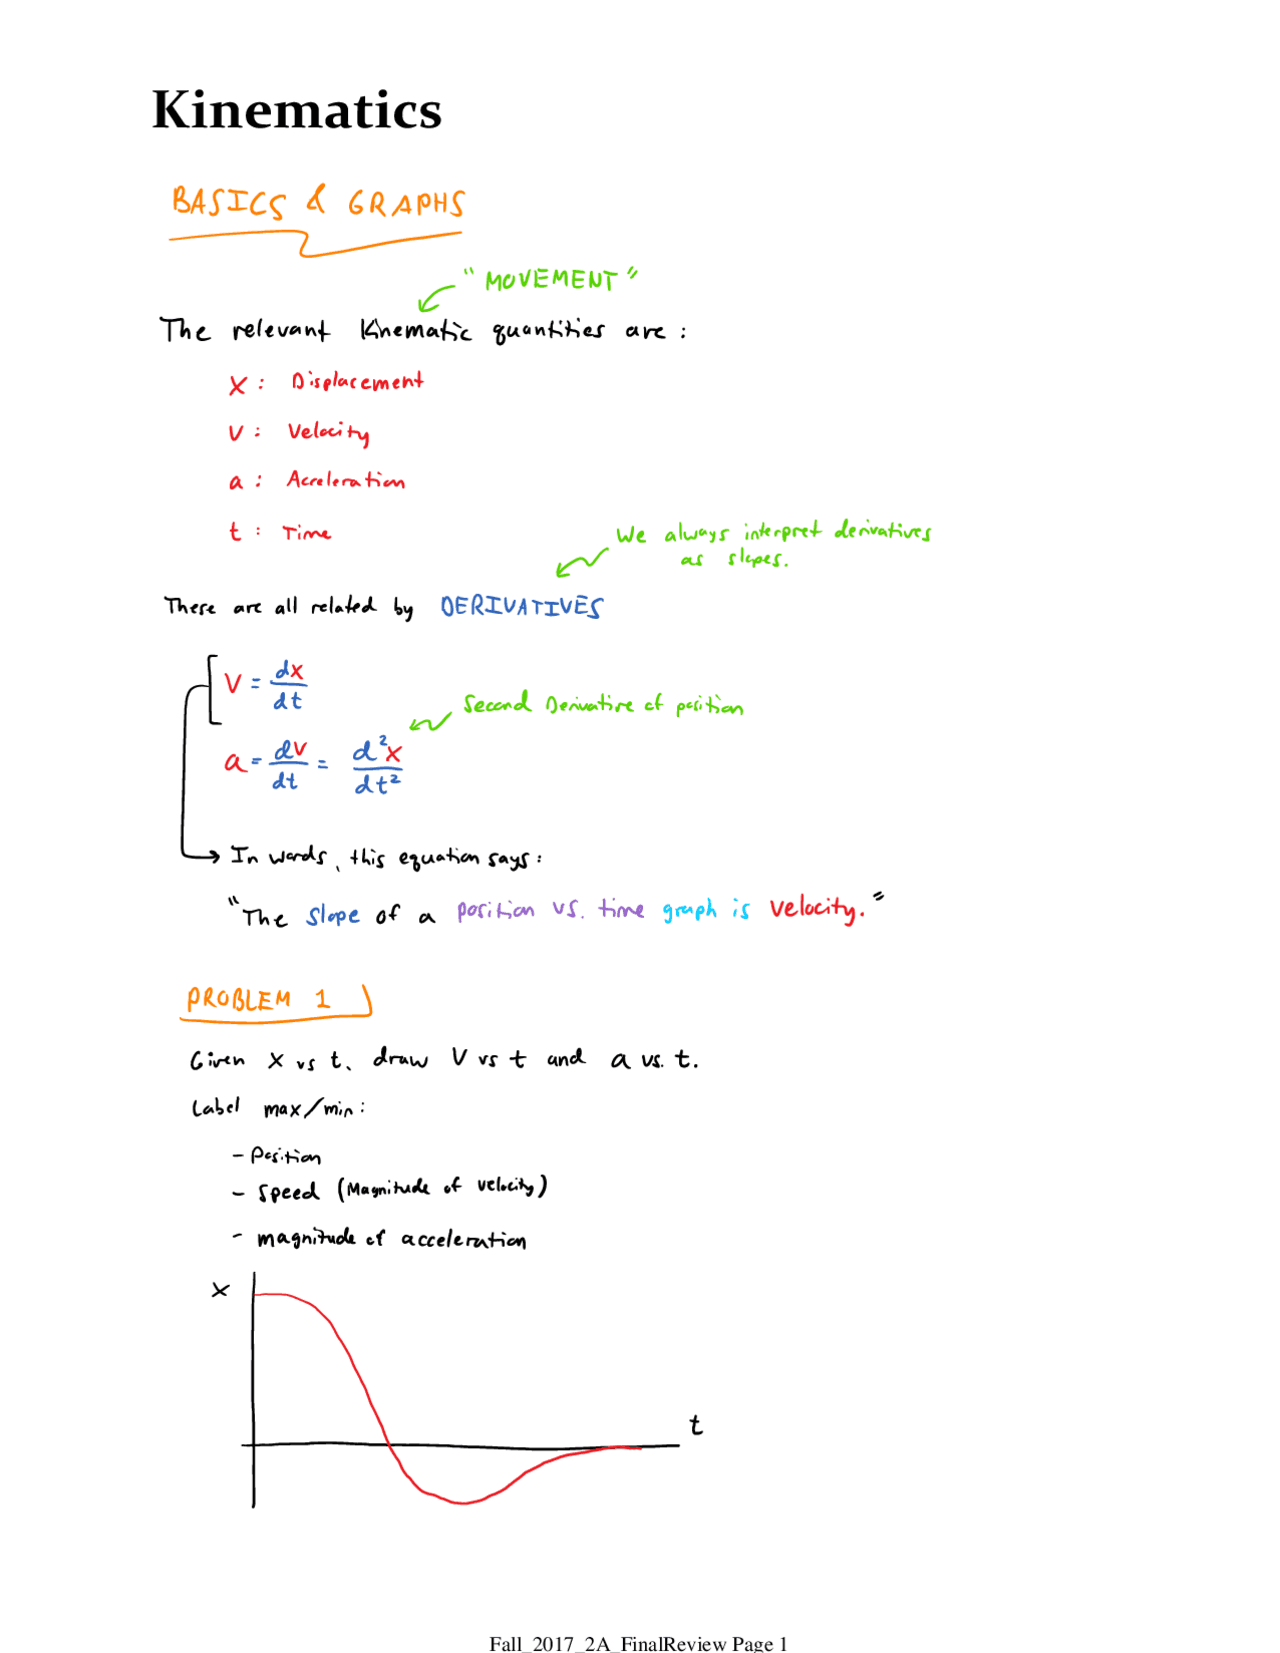 Kinematics
BASICS & GRAPHS
"MOVEMENT"
The relevant Kinematic quantities are:
x: Displacement
v: Velocity
a: Acceleration
t: Time
We always interpret derivatives
as slopes.
These are all related by DERIVATIVES
v = dx/dt
Second Derivative of position
a = dv/dt = d²x/dt²
→ In words, this equation says:
"The slope of a position vs. time graph is velocity."
PROBLEM 1
Given x vs t, draw v vs t and a vs. t.
Label max/min:
- Position
- Speed (Magnitude of velocity)
- magnitude of acceleration
x
t
Fall_2017_2A_FinalReview Page 1